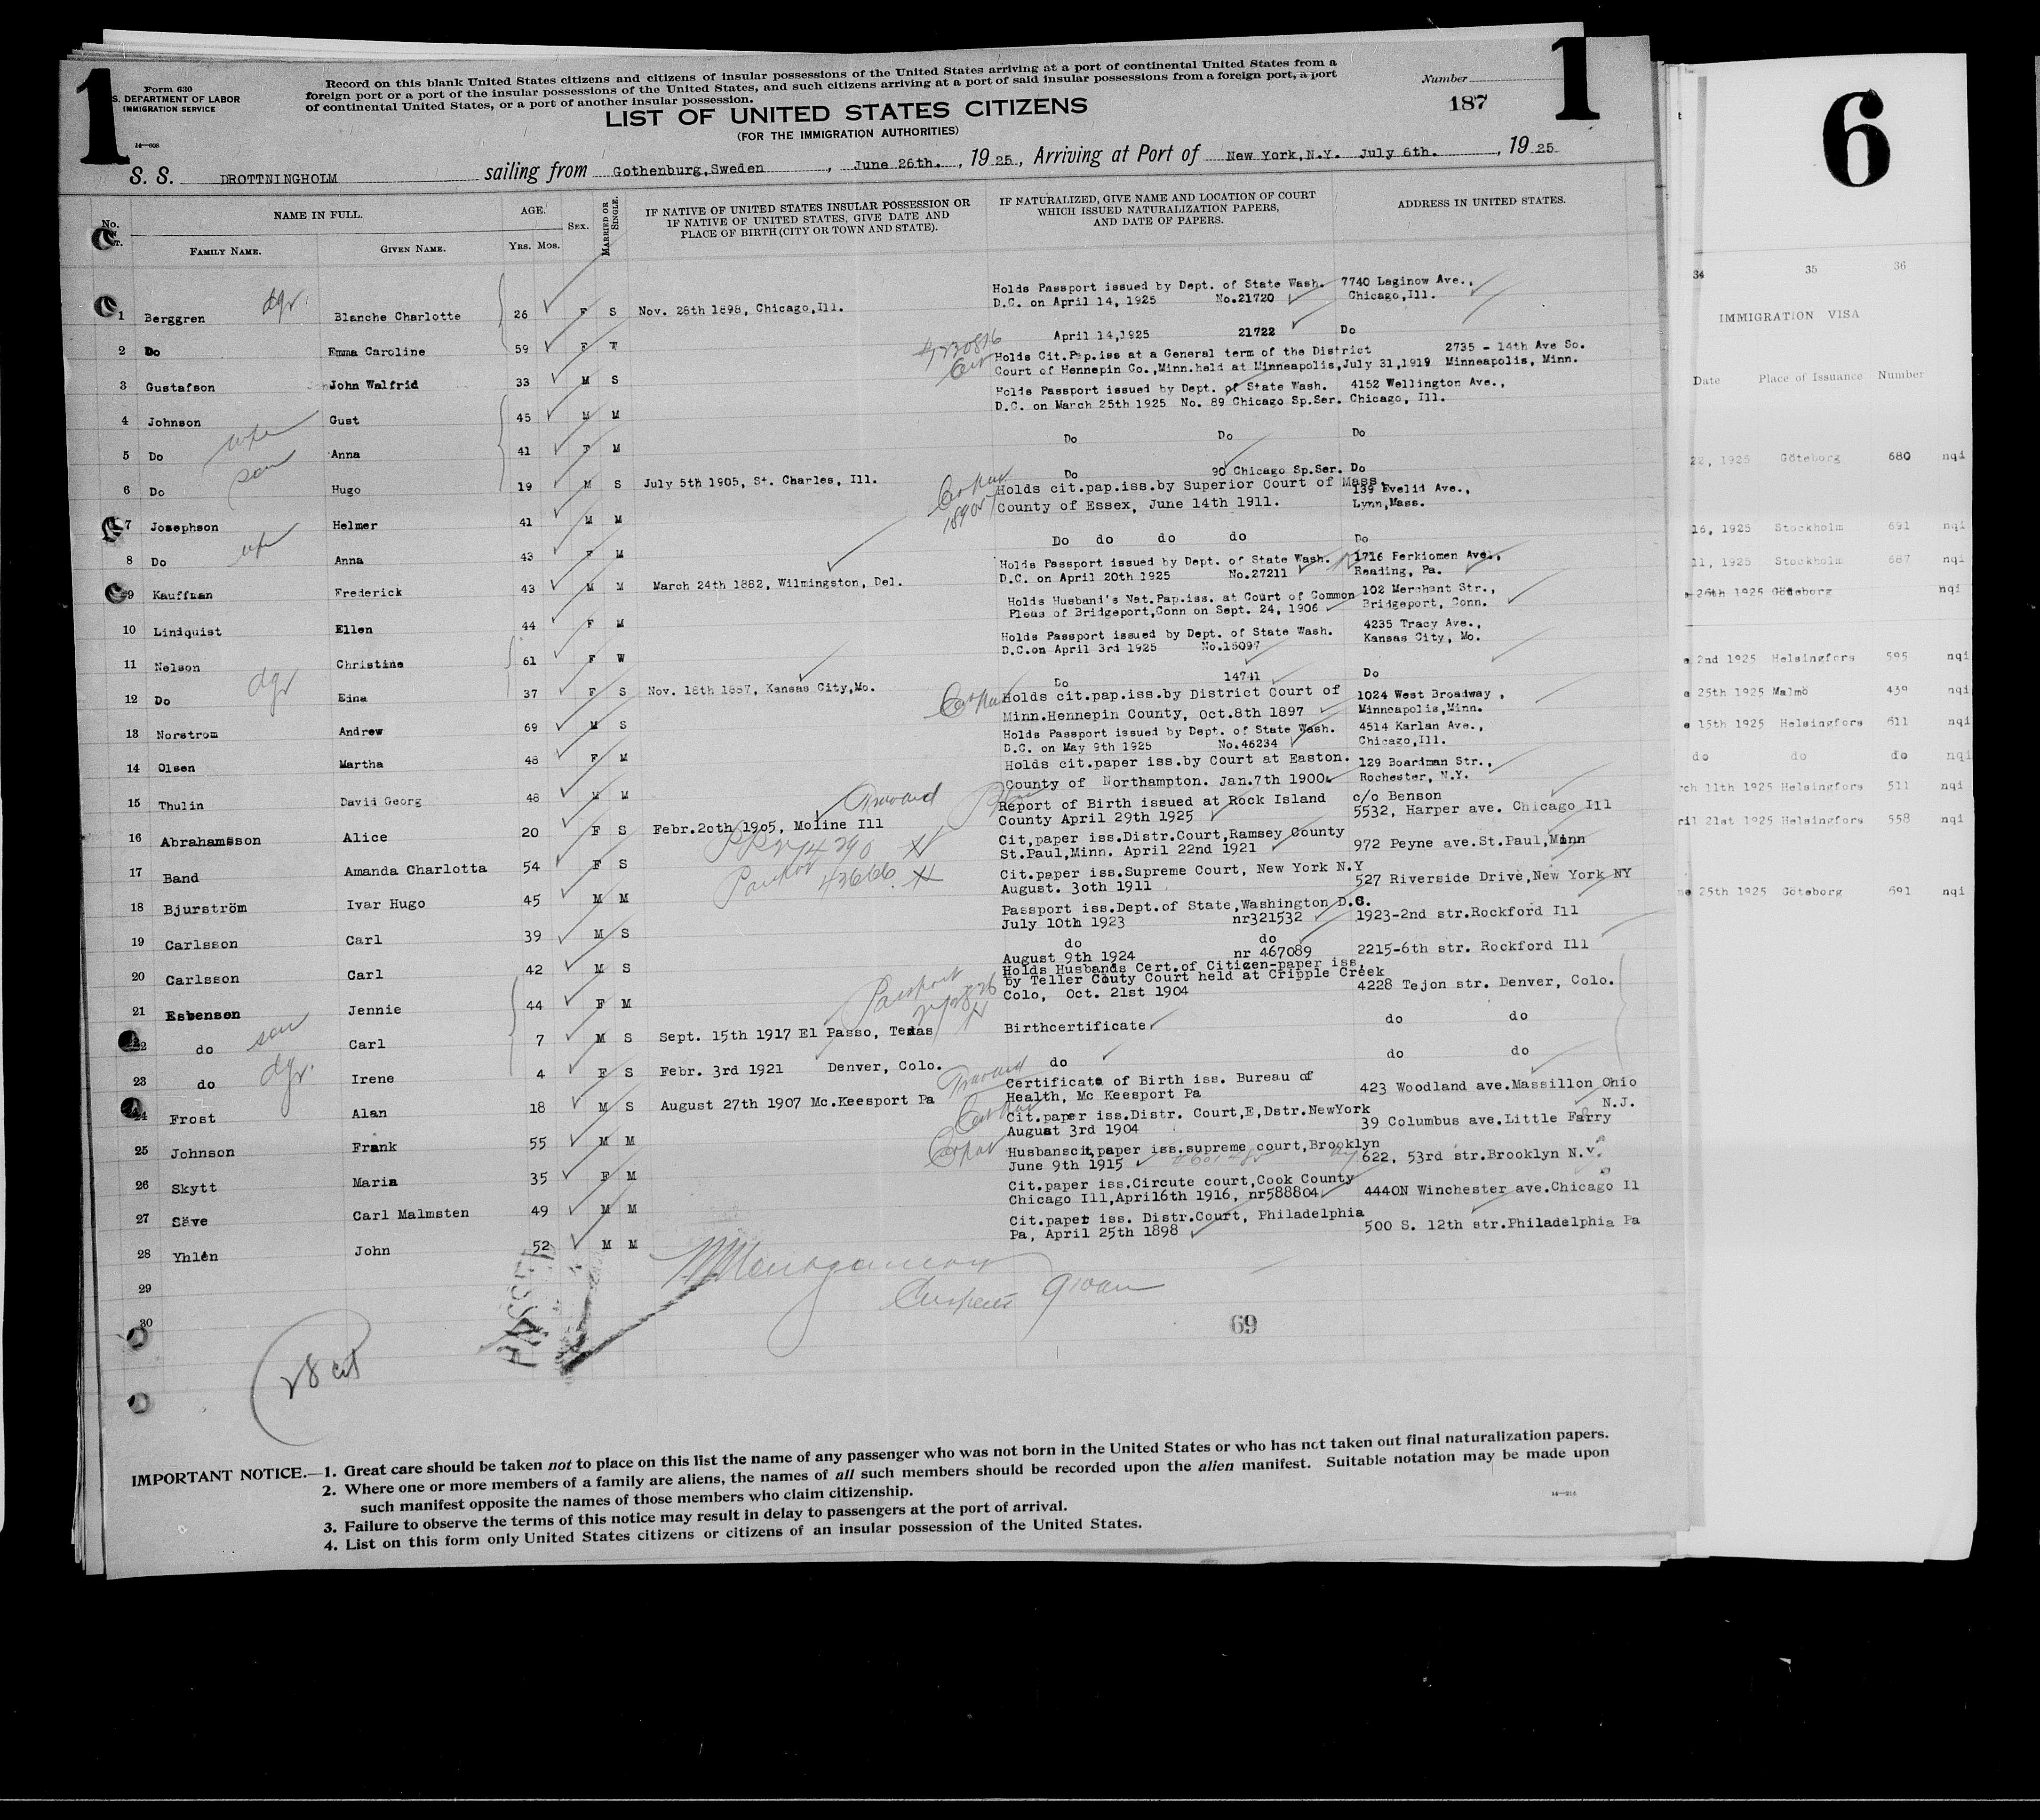 1
1
6
Form 630
S. DEPARTMENT OF LABOR
IMMIGRATION SERVICE
14—608
Record on this blank United States citizens and citizens of insular possessions of the United States arriving at a port of continental United States from a
foreign port or a port of the insular possessions of the United States, and such citizens arriving at a port of said insular possessions from a foreign port, a port
of continental United States, or a port of another insular possession.
Number
187
LIST OF UNITED STATES CITIZENS
(FOR THE IMMIGRATION AUTHORITIES)
S. S. DROTTNINGHOLM sailing from Gothenburg,Sweden , June 26th. , 1925, Arriving at Port of New York,N.Y. July 6th. , 1925
No. NAME IN FULL. AGE. SEX. MARRIED OR SINGLE. IF NATIVE OF UNITED STATES INSULAR POSSESSION OR IF NATIVE OF UNITED STATES, GIVE DATE AND PLACE OF BIRTH (CITY OR TOWN AND STATE). IF NATURALIZED, GIVE NAME AND LOCATION OF COURT WHICH ISSUED NATURALIZATION PAPERS, AND DATE OF PAPERS. ADDRESS IN UNITED STATES.
FAMILY NAME. GIVEN NAME. YRS. MOS.
1 Berggren dgr. Blanche Charlotte 26 F S Nov. 28th 1898, Chicago,Ill. Holds Passport issued by Dept. of State Wash. D.C. on April 14, 1925 No.21720 7740 Laginow Ave., Chicago,Ill.
2 Do Emma Caroline 59 F April 14,1925 21722 Do
3 Gustafson John Walfrid 33 M S Holds Cit.Pap.iss at a General term of the District Court of Hennepin Co.,Minn.held at Minneapolis,July 31,1919 2735 - 14th Ave So. Minneapolis, Minn.
4 Johnson Gust 45 M M Holds Passport issued by Dept. of State Wash. D.C. on March 25th 1925 No. 89 Chicago Sp.Ser. 4152 Wellington Ave., Chicago, Ill.
5 Do wfe Anna 41 F M Do Do Do
6 Do son Hugo 19 M S July 5th 1905, St. Charles, Ill. Do 90 Chicago Sp.Ser. Do
7 Josephson Helmer 41 M M Holds cit.pap.iss.by Superior Court of Mass. County of Essex, June 14th 1911. 139 Evelid Ave., Lynn,Mass.
8 Do wfe Anna 43 F M Do do do do Do
9 Kauffman Frederick 43 M M March 24th 1882, Wilmington, Del. Holds Passport issued by Dept. of State Wash. D.C. on April 20th 1925 No.27211 1716 Perkiomen Ave., Reading, Pa.
10 Lindquist Ellen 44 F M Holds Husband's Nat.Pap.iss. at Court of Common Pleas of Bridgeport,Conn on Sept. 24, 1906 102 Merchant Str., Bridgeport, Conn.
11 Nelson Christine 61 F W Holds Passport issued by Dept. of State Wash. D.C.on April 3rd 1925 No.15097 4235 Tracy Ave., Kansas City, Mo.
12 Do dgr Eina 37 F S Nov. 18th 1887, Kansas City,Mo. Do 14741 Do
13 Norstrom Andrew 69 M S Holds cit.pap.iss.by District Court of Minn.Hennepin County, Oct.8th 1897 1024 West Broadway , Minneapolis,Minn.
14 Olsen Martha 48 F M Holds Passport issued by Dept. of State Wash. D.C. on May 9th 1925 No.46234 4514 Karlan Ave., Chicago,Ill.
15 Thulin David Georg 48 M M Holds cit.paper iss.by Court at Easton. County of Northampton. Jan.7th 1900 129 Boardman Str., Rochester, N.Y.
16 Abrahamsson Alice 20 F S Febr.2oth 19o5, Moline Ill Report of Birth issued at Rock Island County April 29th 1925 c/o Benson 5532, Harper ave. Chicago Ill
17 Band Amanda Charlotta 54 F S Cit,paper iss.Distr.Court,Ramsey County St.Paul,Minn. April 22nd 1921 972 Peyne ave.St.Paul,Minn
18 Bjurström Ivar Hugo 45 M M Cit.paper iss.Supreme Court, New York N.Y August. 3oth 1911 527 Riverside Drive,New York NY
19 Carlsson Carl 39 M S Passport iss.Dept.of State,Washington D.C. July 10th 1923 nr321532 1923-2nd str.Rockford Ill
20 Carlsson Carl 42 M S do do August 9th 1924 nr 467089 2215-6th str. Rockford Ill
21 Esbensen Jennie 44 F M Holds Husbands Cert.of Citizen-paper iss, by Teller Couty Court held at Cripple Creek Colo, Oct. 21st 1904 4228 Tejon str. Denver, Colo.
22 do son Carl 7 M S Sept. 15th 1917 El Passo, Texas Birthcertificate do do
23 do dgr. Irene 4 F S Febr. 3rd 1921 Denver, Colo. do do do
24 Frost Alan 18 M S August 27th 1907 Mc.Keesport Pa Certificate of Birth iss. Bureau of Health, Mc Keesport Pa 423 Woodland ave.Massillon Ohio
25 Johnson Frank 55 M M Cit.paper iss.Distr. Court,E,Dstr.NewYork August 3rd 1904 39 Columbus ave.Little Farry N.J.
26 Skytt Maria 35 F M Husbanscit,paper iss.supreme court,Brooklyn June 9th 1915 622, 53rd str.Brooklyn N.Y.
27 Säve Carl Malmsten 49 M M Cit.paper iss.Circute court,Cook County Chicago Ill,April6th 1916, nr588804 4440N Winchester ave.Chicago Il
28 Yhlén John 52 M M Cit.paper iss. Distr.Court, Philadelphia Pa, April 25th 1898 500 S. 12th str.Philadelphia Pa
29
30
69
28 cit
IMPORTANT NOTICE.—1. Great care should be taken not to place on this list the name of any passenger who was not born in the United States or who has not taken out final naturalization papers.
2. Where one or more members of a family are aliens, the names of all such members should be recorded upon the alien manifest. Suitable notation may be made upon
such manifest opposite the names of those members who claim citizenship.
3. Failure to observe the terms of this notice may result in delay to passengers at the port of arrival.
4. List on this form only United States citizens or citizens of an insular possession of the United States.
14—216
34 35 36
IMMIGRATION VISA
Date Place of Issuance Number
22, 1925 Göteborg 680 nqi
16, 1925 Stockholm 691 nqi
11, 1925 Stockholm 687 nqi
26th 1925 Göteborg nqi
2nd 1925 Helsingfors 595 nqi
25th 1925 Malmö 439 nqi
15th 1925 Helsingfors 611 nqi
do do do nqi
rch 11th 1925 Helsingfors 511 nqi
ril 21st 1925 Helsingfors 558 nqi
ne 25th 1925 Göteborg 691 nqi